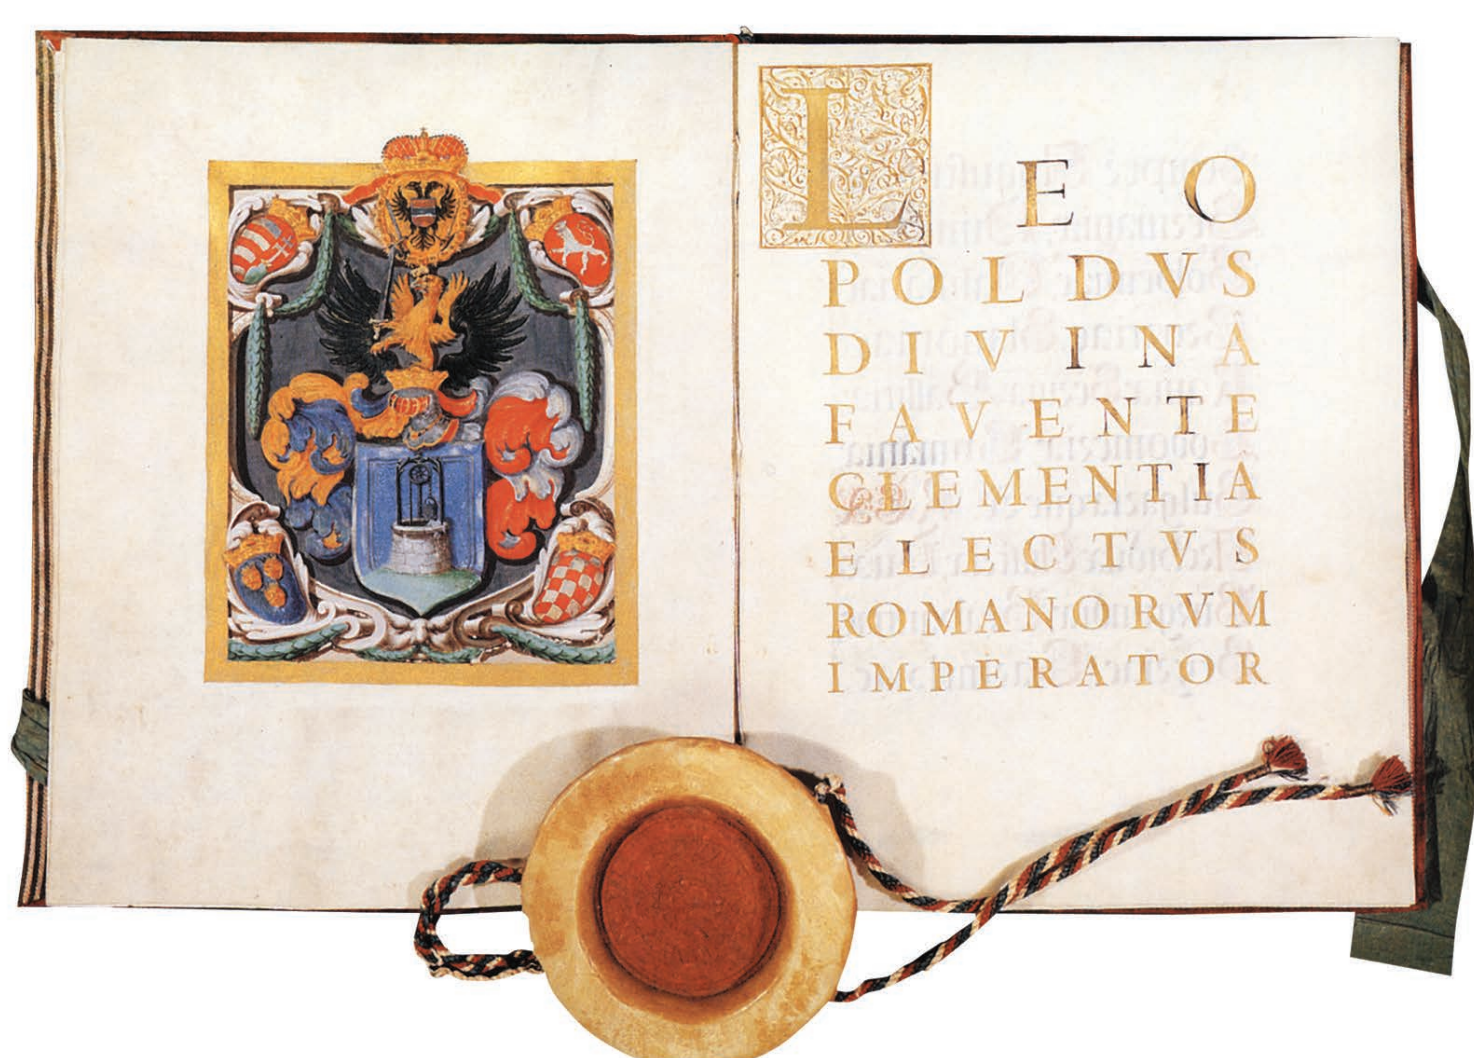 LEO
POLDVS
DIVINÂ
FAVENTE
CLEMENTIÂ
ELECTVS
ROMANORVM
IMPERATOR